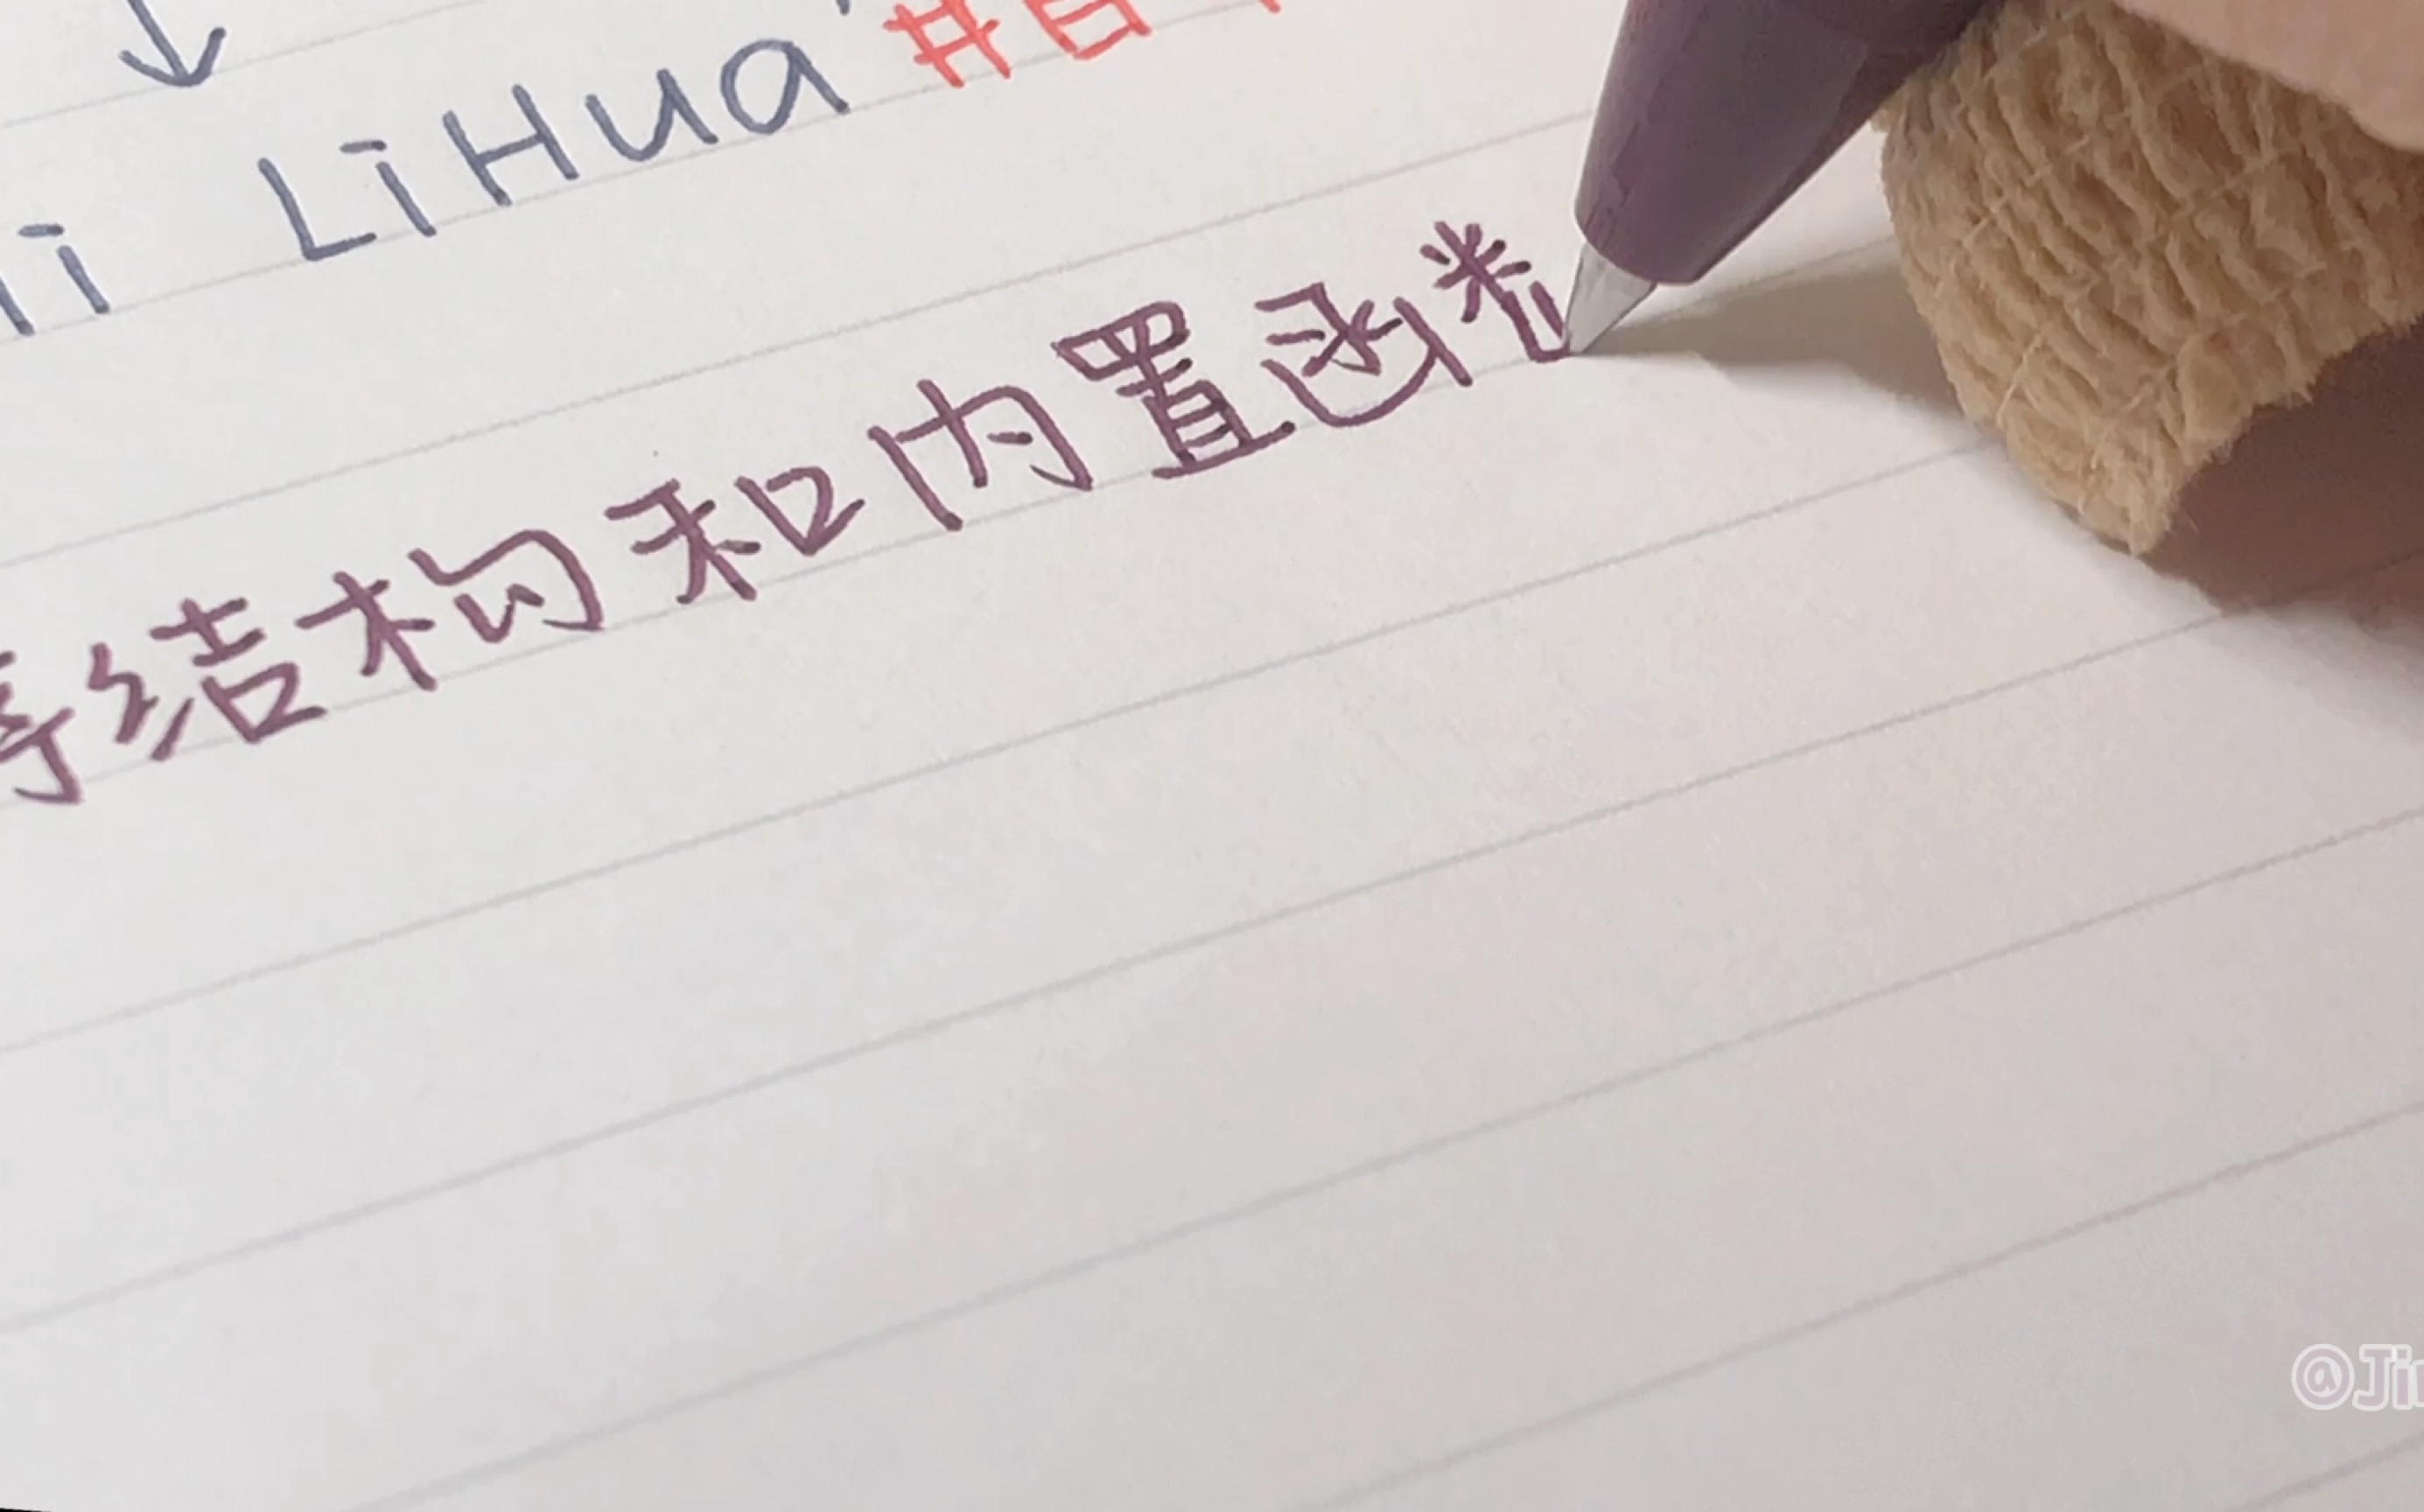 Hi LiHua' #
等结构和内置函
@Ji